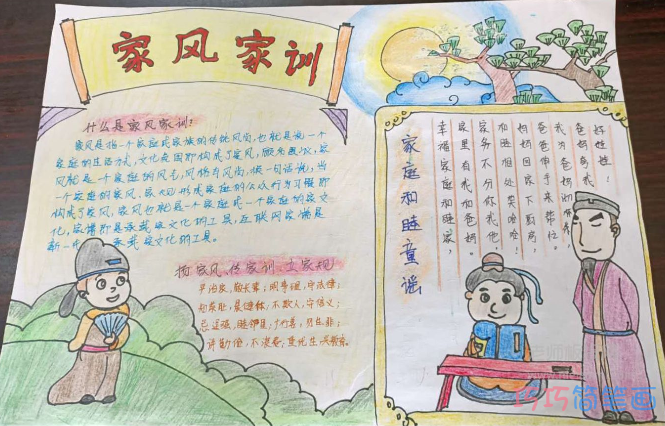 家风家训
什么是家风家训:
家风是指一个家庭或家族的传统风尚,也就是说一个
家庭的生活方式,文化氛围即构成了家风,顾名思义,家
风就是一个家庭的风气,风格与风尚,换一句话说,当
一个家庭的家风、家 形成家庭的公认行为习惯即
构成了家风,家风也就是一个家庭或一个家族的家文
化,家谱即是承载家文化的工具,互联网家谱是
新一 承载家文化的工具。
扬家风、传家训、立家规
治家,敬长辈;守法律;
知荣耻,健体,不欺人,守信义;
忌逞强,睦邻里,明是非;
讲勤俭,不浪费,
家庭和睦童谣
幸福家庭和睦家,
家里有我和爸妈。
家务不分你我他,
和睦相处笑哈哈!
妈妈回家下厨房,
爸爸伸手来帮忙
我为爸妈
爸妈夸我
好娃娃!
巧巧简笔画